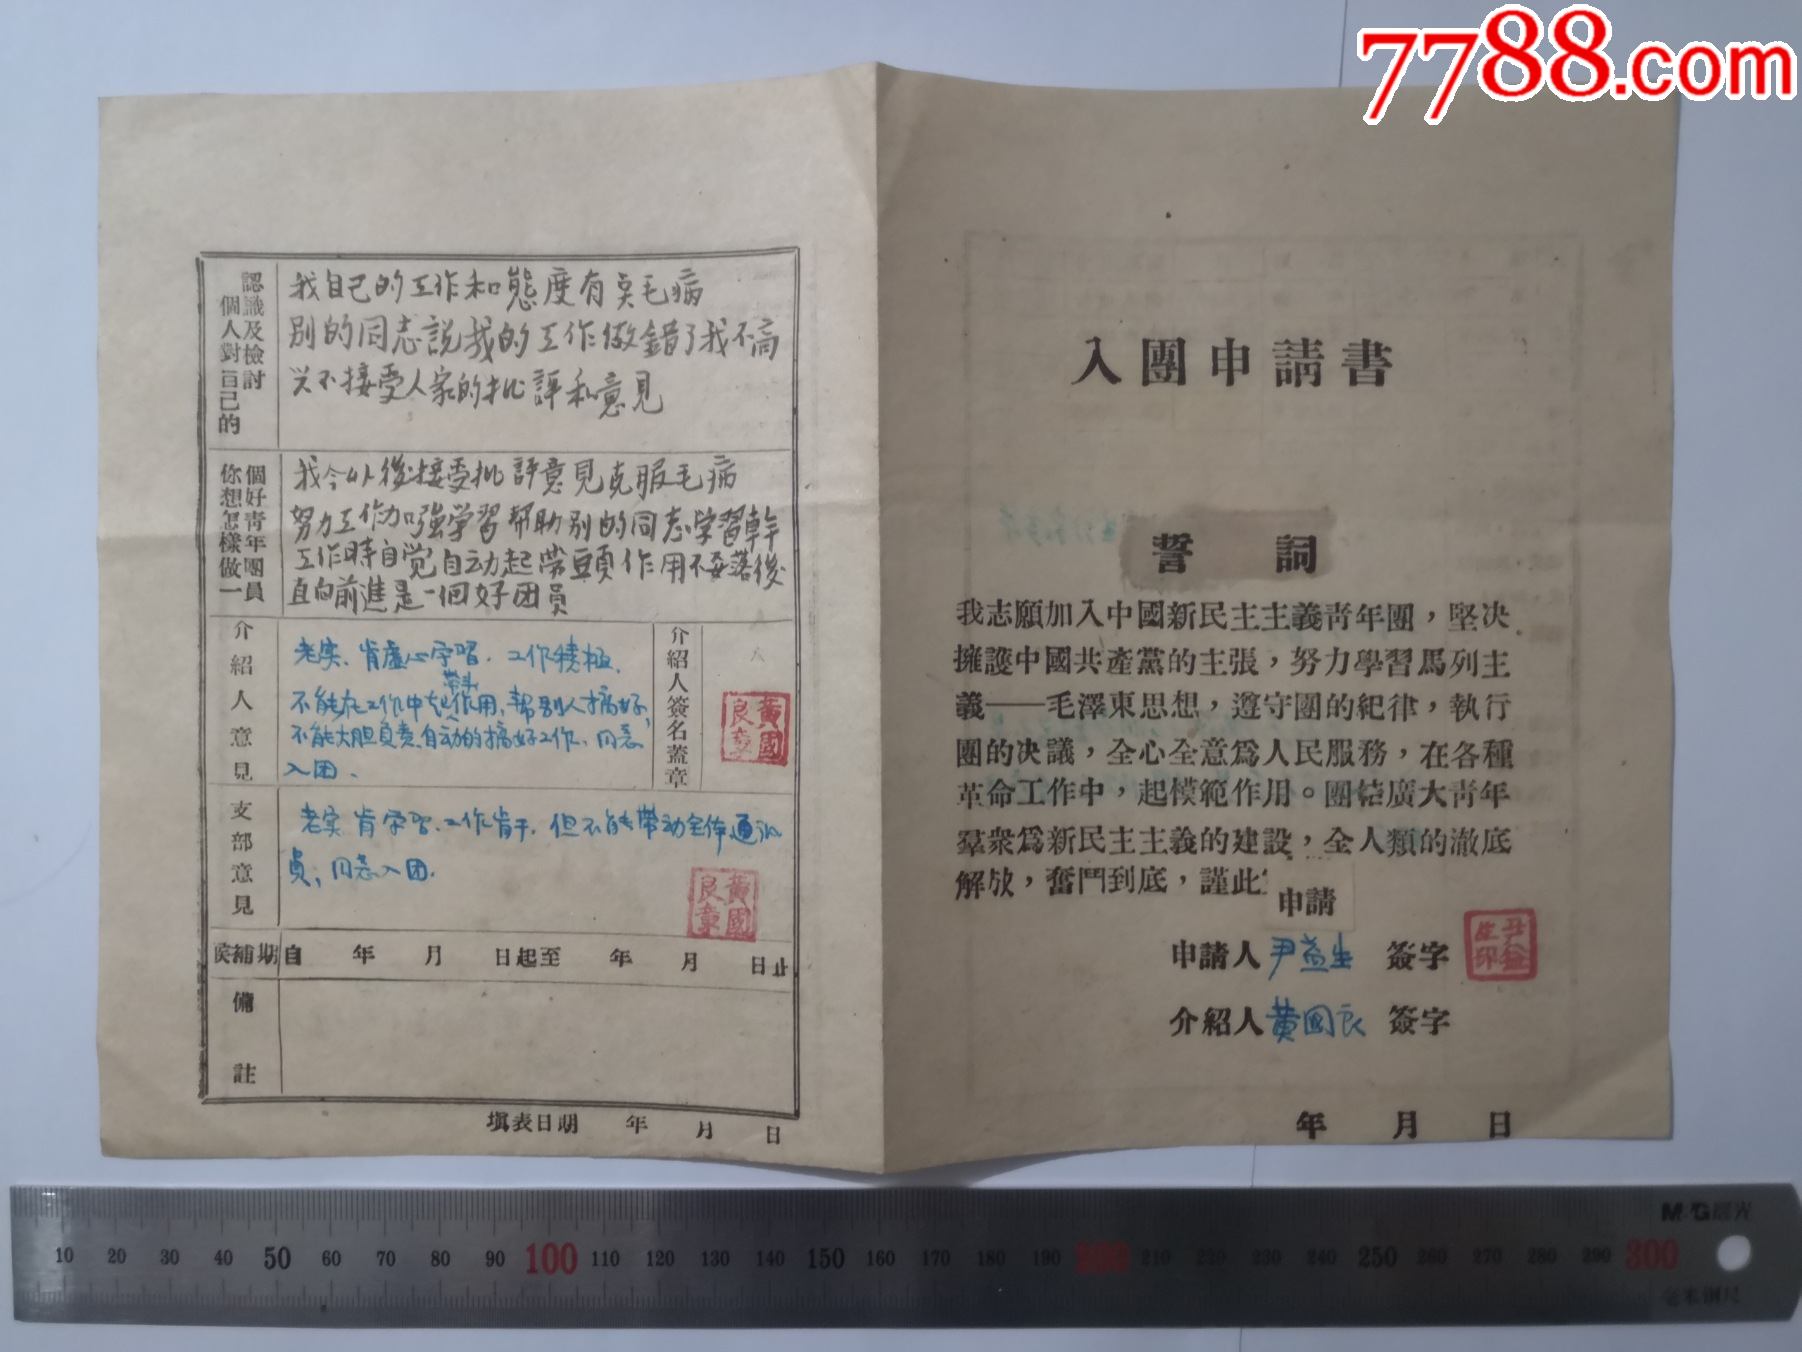 7788.com
認識及檢討
個人對自己的
我自己的工作和態度有点毛病
別的同志説我的工作做錯了我不高
兴不接受人家的批評和意見
個好青年團員
你想怎樣做一
我今以後接受批評意見克服毛病
努力工作加强学習帮助别的同志学習幹
工作時自觉自动起带頭作用不要落後
直向前進是一個好团員
介紹人意見
老实、肯虚心学習、工作積極、
带头
不能在工作中起作用,帮别人搞好,
不能大胆負责自动的搞好工作、同意
入团.
介紹人簽名蓋章
黃國良章
支部意見
老实肯学習、工作肯干,但不能带动全体通訊
員,同意入团.
黃國良章
候補期 自 年 月 日起至 年 月 日止
備註
塡表日期 年 月 日
入團申請書
誓 詞
我志願加入中國新民主主義青年團,堅决
擁護中國共產黨的主張,努力學習馬列主
義——毛澤東思想,遵守團的紀律,執行
團的决議,全心全意爲人民服務,在各種
革命工作中,起模範作用。團結廣大青年
羣衆爲新民主主義的建設,全人類的澈底
解放,奮鬥到底,謹此
申請
申請人 尹益生 簽字
尹益生印
介紹人 黄國良 簽字
年 月 日
M&G晨光
10 20 30 40 50 60 70 80 90 100 110 120 130 140 150 160 170 180 190 200 210 220 230 240 250 260 270 280 290 300
毫米钢尺